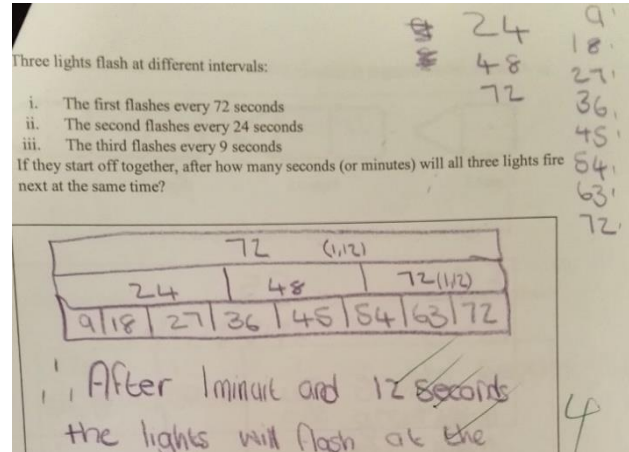 24
48
72
9
18
27
36
45
54
63
72
Three lights flash at different intervals:
i. The first flashes every 72 seconds
ii. The second flashes every 24 seconds
iii. The third flashes every 9 seconds
If they start off together, after how many seconds (or minutes) will all three lights fire
next at the same time?
72 (1,12)
24 48 72(1,12)
9 18 27 36 45 54 63 72
∴ After 1minuit and 12 seconds
the lights will flash at the
4